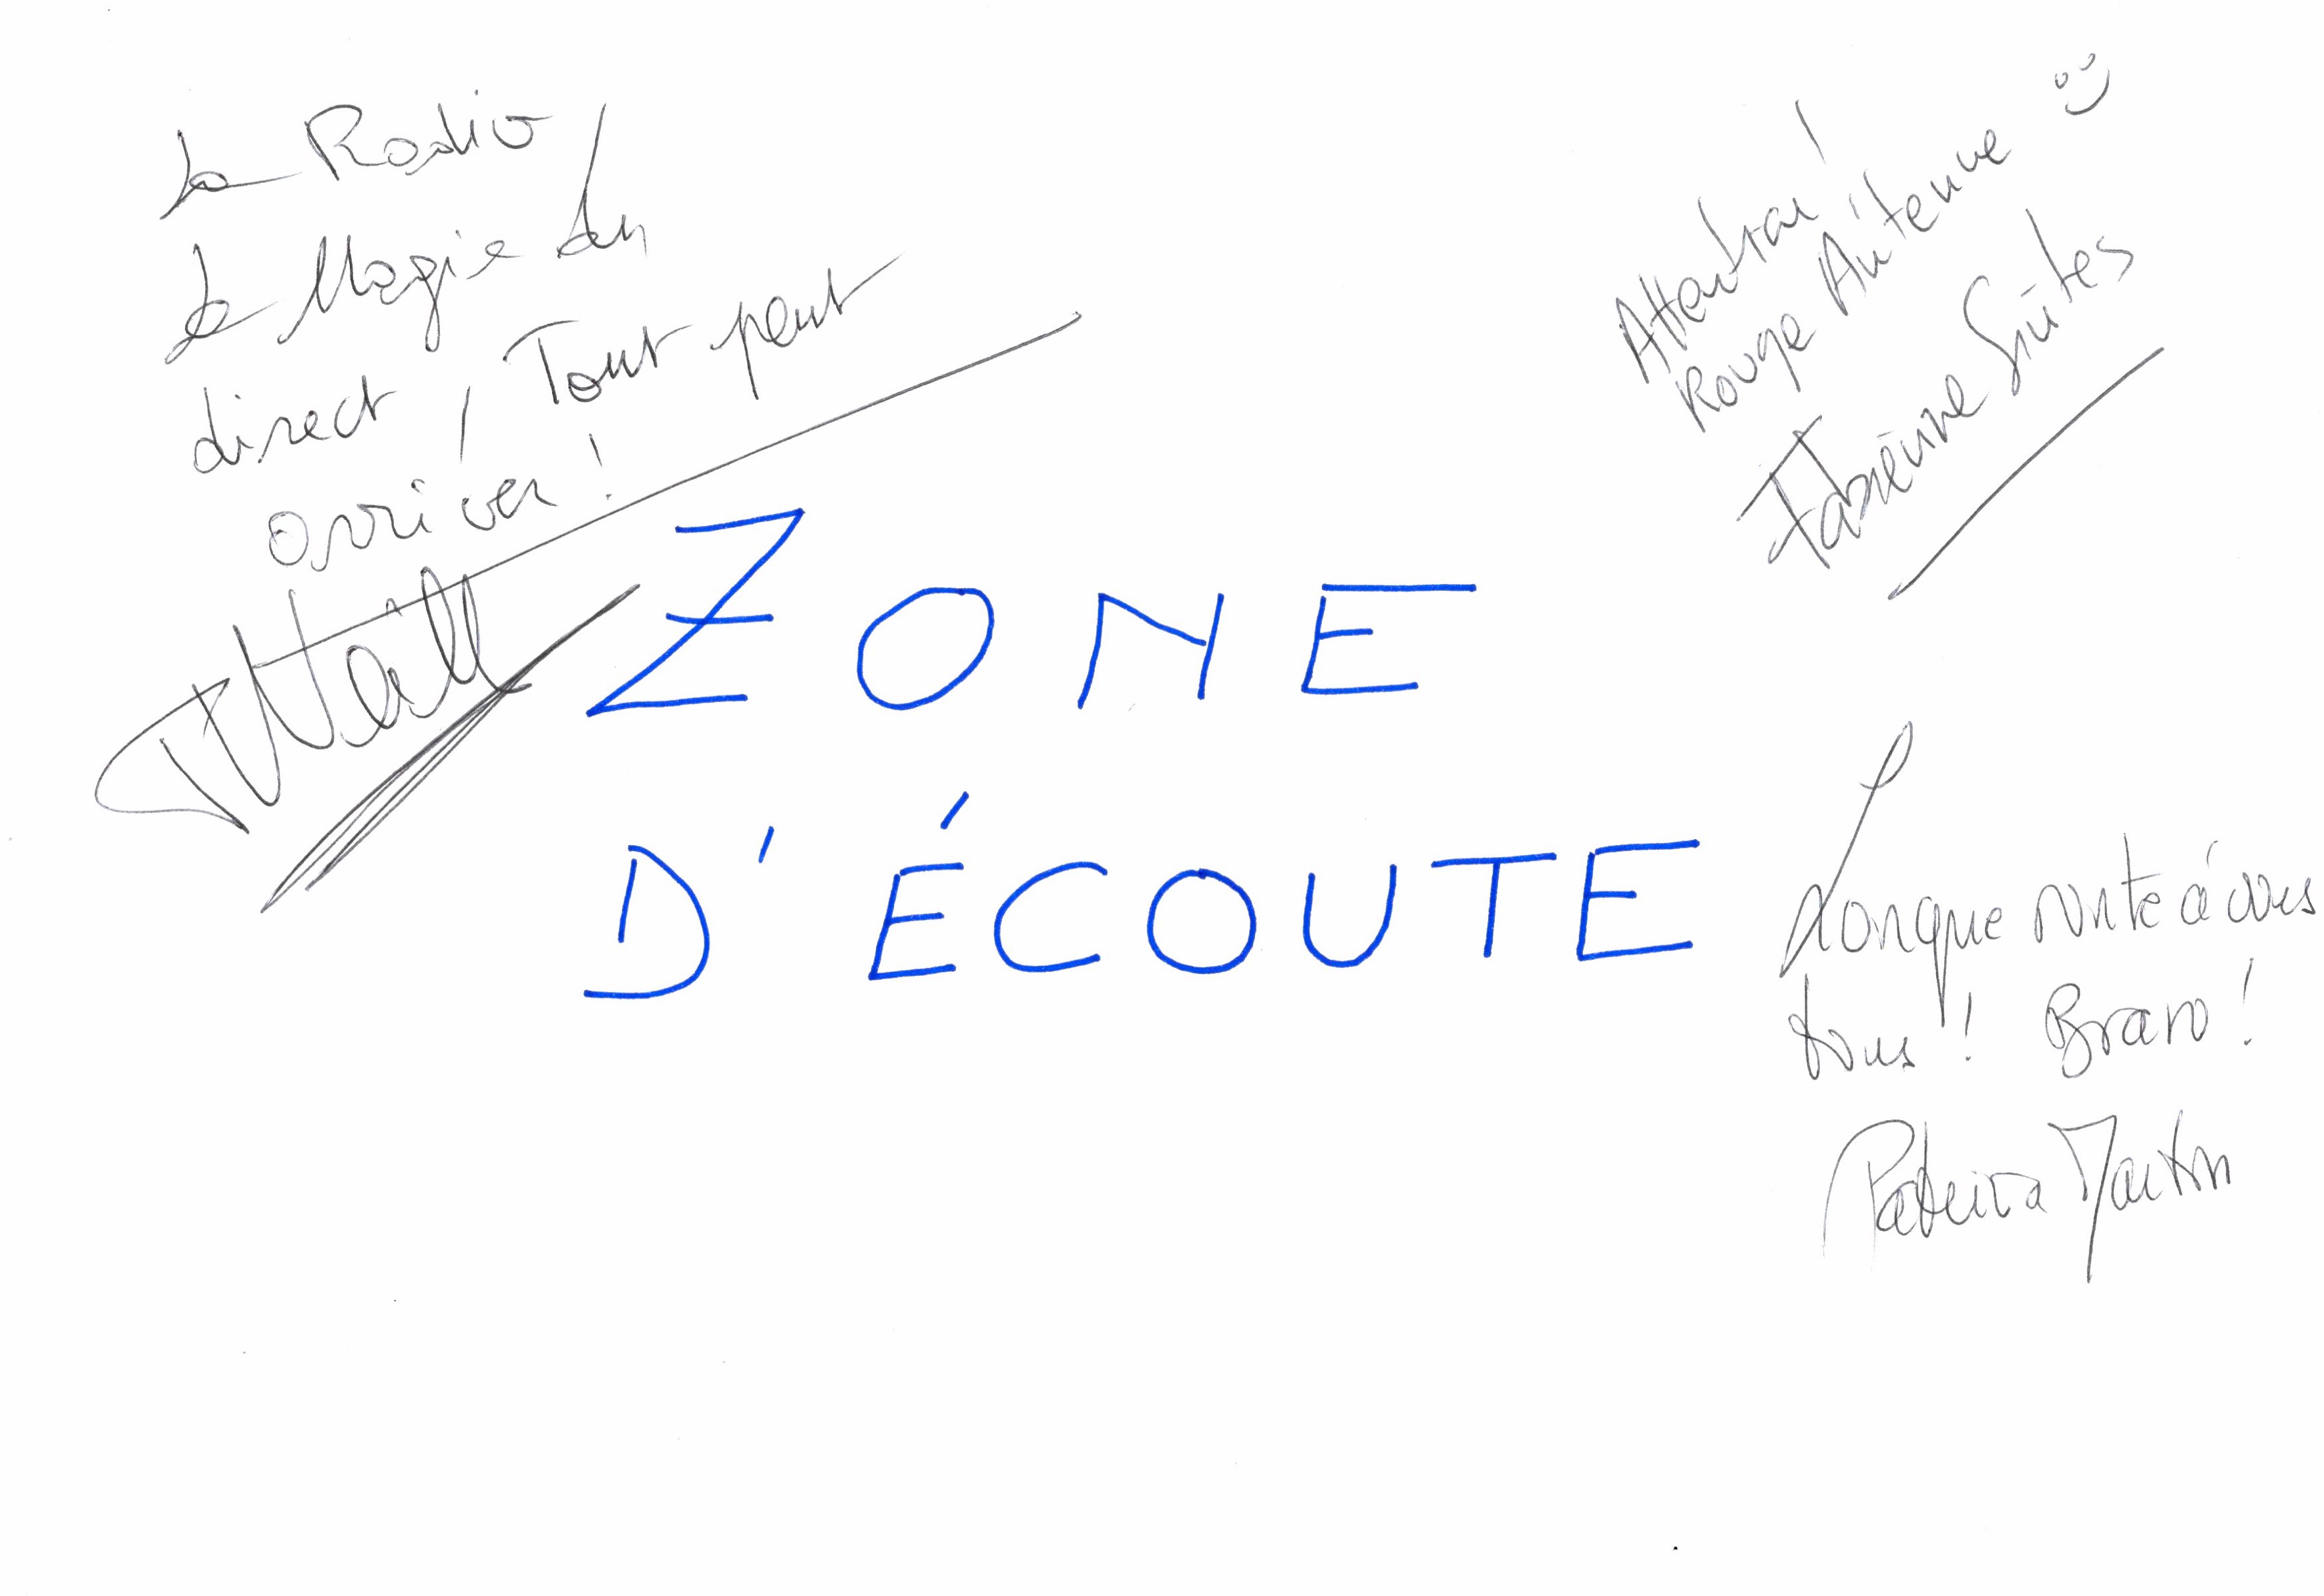 La Radio
La Magie du
direct / Tout peut
arriver !
Attention !
Rouge Antenne
Fabienne
ZONE
D'ÉCOUTE
Longue route à vous
tous ! Bravo !
Patricia Martin